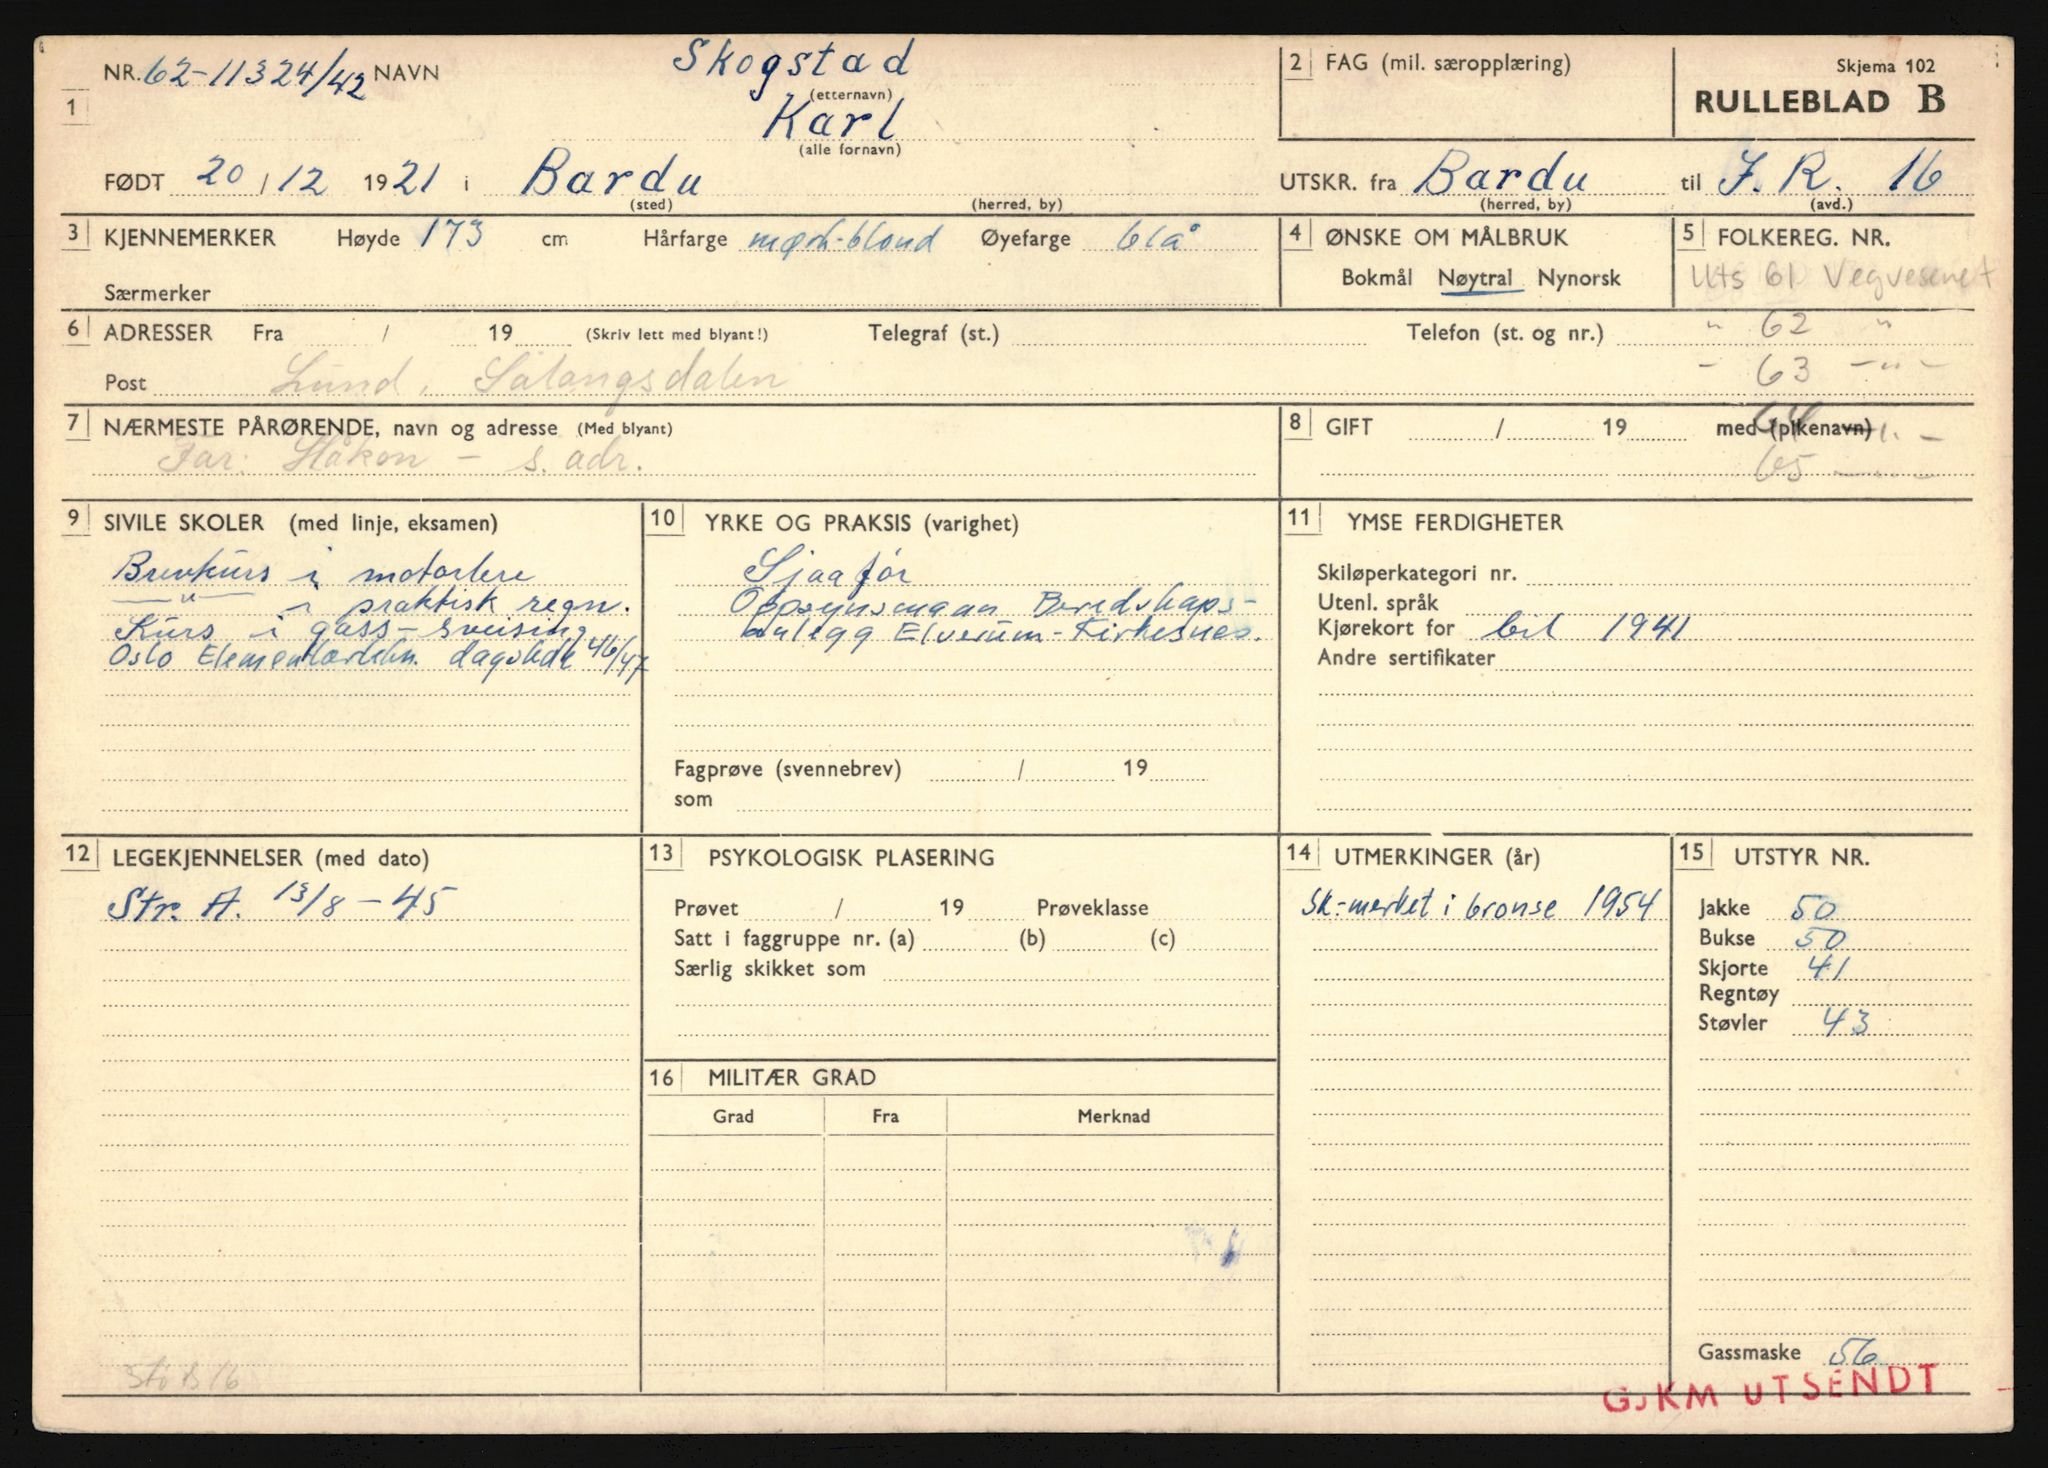 NR. 62-11324/42 NAVN Skogstad
(etternavn)
1
Karl
(alle fornavn)
FØDT 20 / 12 1921 i Bardu
(sted) (herred, by)
2 FAG (mil. særopplæring)
Skjema 102
RULLEBLAD B
UTSKR. fra Bardu til J. R. 16
(herred, by) (avd.)
3 KJENNEMERKER Høyde 173 cm Hårfarge mørk-blond Øyefarge blå
Særmerker
4 ØNSKE OM MÅLBRUK
Bokmål Nøytral Nynorsk
5 FOLKEREG. NR.
Uts 61 Vegvesenet
6 ADRESSER Fra / 19 (Skriv lett med blyant!) Telegraf (st.) Telefon (st. og nr.) " 62 "
Post Lund, Salangsdalen - 63 -"-
7 NÆRMESTE PÅRØRENDE, navn og adresse (Med blyant)
Far: Håkon - s. adr.
8 GIFT / 19 med (pikenavn) 64 -"-
65 -"-
9 SIVILE SKOLER (med linje, eksamen)
Brevkurs i motorlære
—"— i praktisk regn.
Kurs i gass-sveising
Oslo Elementærtekn. dagskole 46/47
10 YRKE OG PRAKSIS (varighet)
Sjaafør
Oppsynsmann Beredskaps-
anlegg Elverum-Kirkesnes.
Fagprøve (svennebrev) / 19
som
11 YMSE FERDIGHETER
Skiløperkategori nr.
Utenl. språk
Kjørekort for bil 1941
Andre sertifikater
12 LEGEKJENNELSER (med dato)
Str. A. 13/8 - 45
13 PSYKOLOGISK PLASERING
Prøvet / 19 Prøveklasse
Satt i faggruppe nr. (a) (b) (c)
Særlig skikket som
14 UTMERKINGER (år)
Sk-merket i bronse 1954
15 UTSTYR NR.
Jakke 50
Bukse 50
Skjorte 41
Regntøy
Støvler 43
16 MILITÆR GRAD
Grad Fra Merknad
Gassmaske 56
GJKM UTSENDT